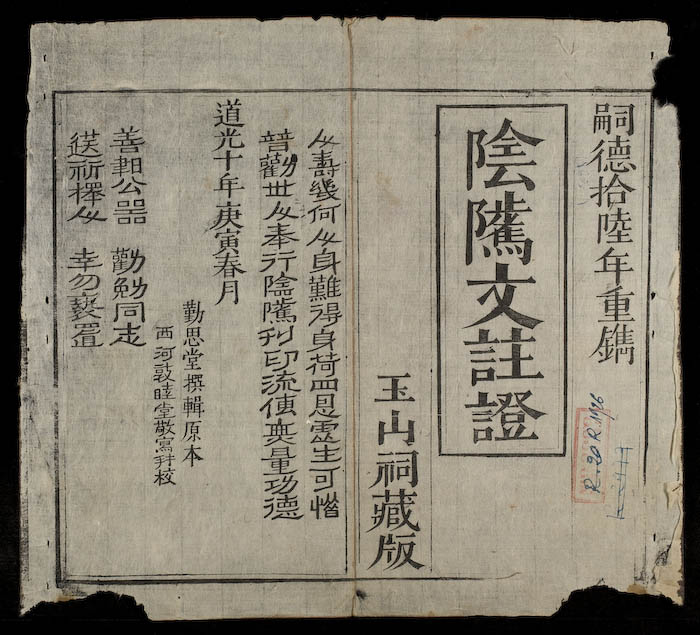 嗣德拾陸年重鐫
陰隲文註證
玉山祠藏版
人壽幾何人身難得身荷四恩虛生可惜
普勸世人奉行陰隲刊印流傳無量功德
道光十年庚寅春月
勤思堂撰輯原本
西河敦睦堂敬寫幷校
善公器 勸勉同志
祈擇人 幸勿褻置